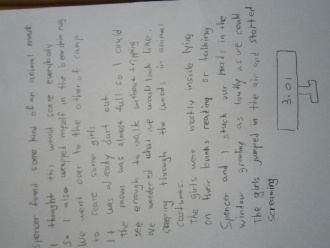 Spencer found some kind of an animal mask
I thought this would scare everybody
So I also wrapped myself in the bearskin rug
We went over to the other of camp
to scare some girls
It was already dark out
The moon was almost full so I could
see enough to walk without tripping
We wondered what we would look like
creeping through the woods in animal
costumes.
The girls were mostly inside lying
on their bunks reading or talking
Spencer and I stuck our heads in the
window growling as loudly as we could
The girls jumped in the air and started
screaming
3:01